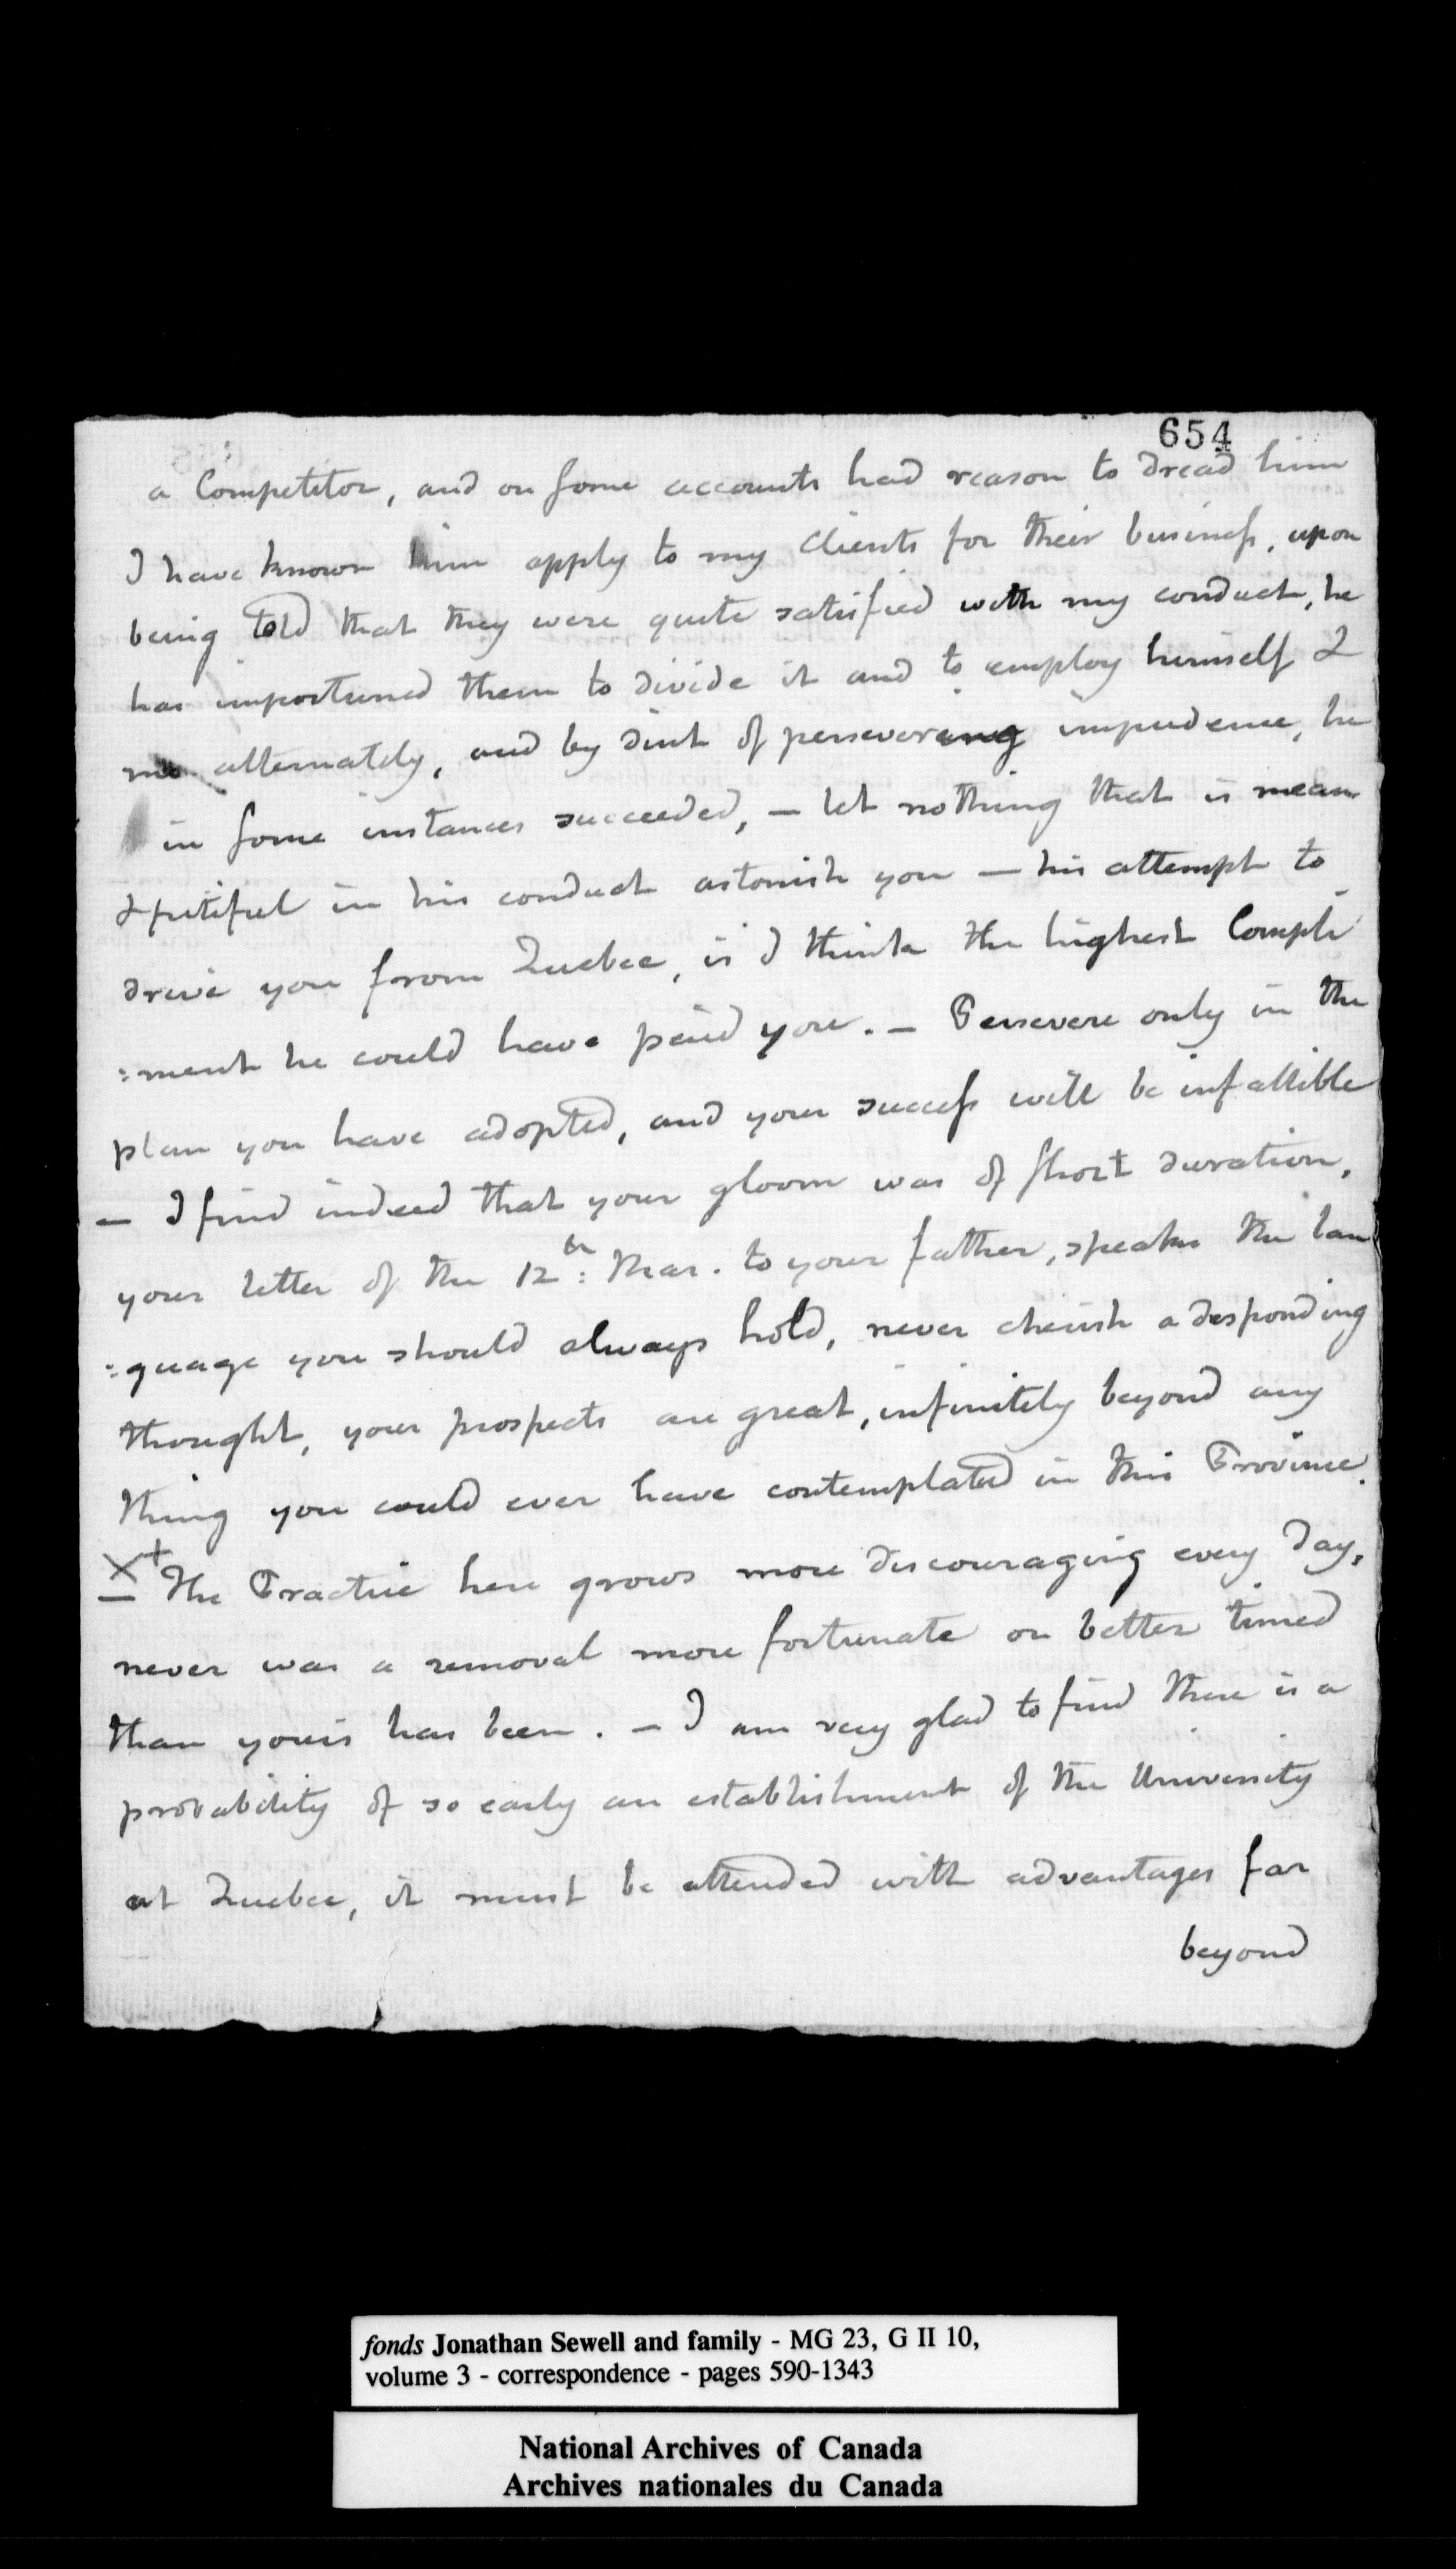 654
a Competitor, and on some accounts had reason to dread him
I have known him apply to my Clients for their business, upon
being told that they were quite satisfied with my conduct, he
has importuned them to divide it and to employ himself &
me alternately, and by dint of persevering impudence, he
in some instances succeeded, – let nothing that is mean
& pitiful in his conduct astonish you – his attempt to
drive you from Quebec, is I think the highest Compli
:ment he could have paid you. – Persevere only in the
plan you have adopted, and your success will be infallible
– I find indeed that your gloom was of short duration,
your letter of the 12th: Mar. to your father, speaks the lan
:guage you should always hold, never cherish a desponding
thought, your prospects are great, infinitely beyond any
thing you could ever have contemplated in this Province.
X + – The Practice here grows more discouraging every day,
never was a removal more fortunate or better timed
than yours has been. – I am very glad to find there is a
probability of so early an establishment of the University
at Quebec, it must be attended with advantages far
beyond
fonds Jonathan Sewell and family - MG 23, G II 10,
volume 3 - correspondence - pages 590-1343
National Archives of Canada
Archives nationales du Canada